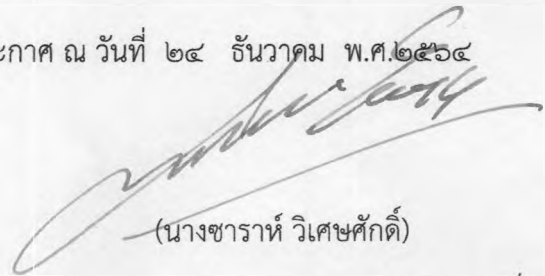 ะกาศ ณ วันที่ ๒๔ ธันวาคม พ.ศ.๒๕๖๔
(นางซาราห์ วิเศษศักดิ์)